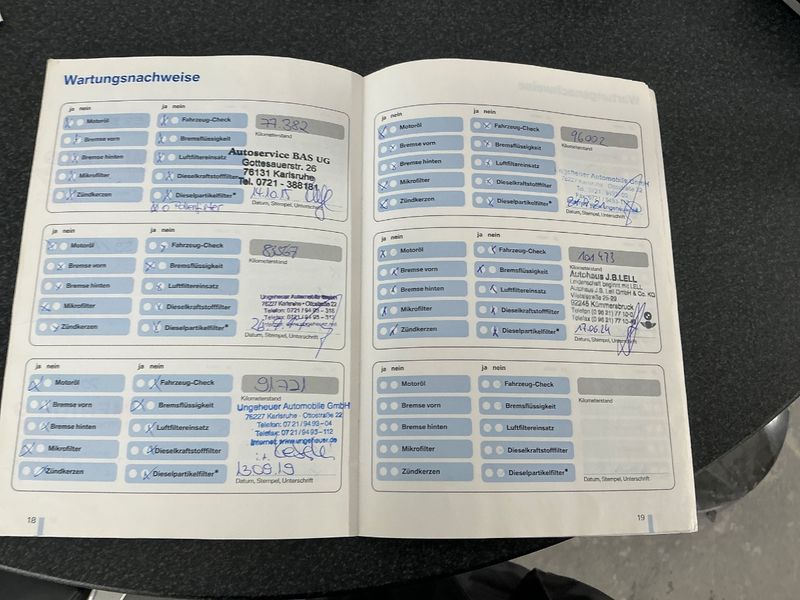 Wartungsnachweise
ja nein
ja nein
Motoröl
Fahrzeug-Check
77.382
Kilometerstand
Bremse vorn
Bremsflüssigkeit
Bremse hinten
Luftfiltereinsatz
Mikrofilter
Dieselkraftstofffilter
Zündkerzen
Dieselpartikelfilter*
Autoservice BAS UG
Gottesauerstr. 26
76131 Karlsruhe
Tel. 0721 - 388181
Datum, Stempel, Unterschrift
ja nein
ja nein
Motoröl
Fahrzeug-Check
Kilometerstand
Bremse vorn
Bremsflüssigkeit
Bremse hinten
Luftfiltereinsatz
Mikrofilter
Dieselkraftstofffilter
Zündkerzen
Dieselpartikelfilter*
76227 Karlsruhe • Ottostraße 22
Datum, Stempel, Unterschrift
ja nein
ja nein
Motoröl
Fahrzeug-Check
91721
Kilometerstand
Bremse vorn
Bremsflüssigkeit
Bremse hinten
Luftfiltereinsatz
Mikrofilter
Dieselkraftstofffilter
Zündkerzen
Dieselpartikelfilter*
Ungeheuer Automobile GmbH
76227 Karlsruhe • Ottostraße 22
Telefon: 07 21 / 94 93 - 04
Telefax: 07 21 / 94 93 - 112
Internet: www.ungeheuer.de
13.09.19
Datum, Stempel, Unterschrift
18
ja nein
ja nein
Motoröl
Fahrzeug-Check
96002
Kilometerstand
Bremse vorn
Bremsflüssigkeit
Bremse hinten
Luftfiltereinsatz
Mikrofilter
Dieselkraftstofffilter
Zündkerzen
Dieselpartikelfilter*
Ungeheuer Automobile GmbH
76227 Karlsruhe • Ottostraße 22
Datum, Stempel, Unterschrift
ja nein
ja nein
Motoröl
Fahrzeug-Check
101 473
Kilometerstand
Bremse vorn
Bremsflüssigkeit
Bremse hinten
Luftfiltereinsatz
Mikrofilter
Dieselkraftstofffilter
Zündkerzen
Dieselpartikelfilter*
Autohaus J.B.LELL
Leidenschaft beginnt mit LELL
Autohaus J.B. Lell GmbH & Co. KG
92245 Kümmersbruck
17.06.24
Datum, Stempel, Unterschrift
ja nein
ja nein
Motoröl
Fahrzeug-Check
Kilometerstand
Bremse vorn
Bremsflüssigkeit
Bremse hinten
Luftfiltereinsatz
Mikrofilter
Dieselkraftstofffilter
Zündkerzen
Dieselpartikelfilter*
Datum, Stempel, Unterschrift
19